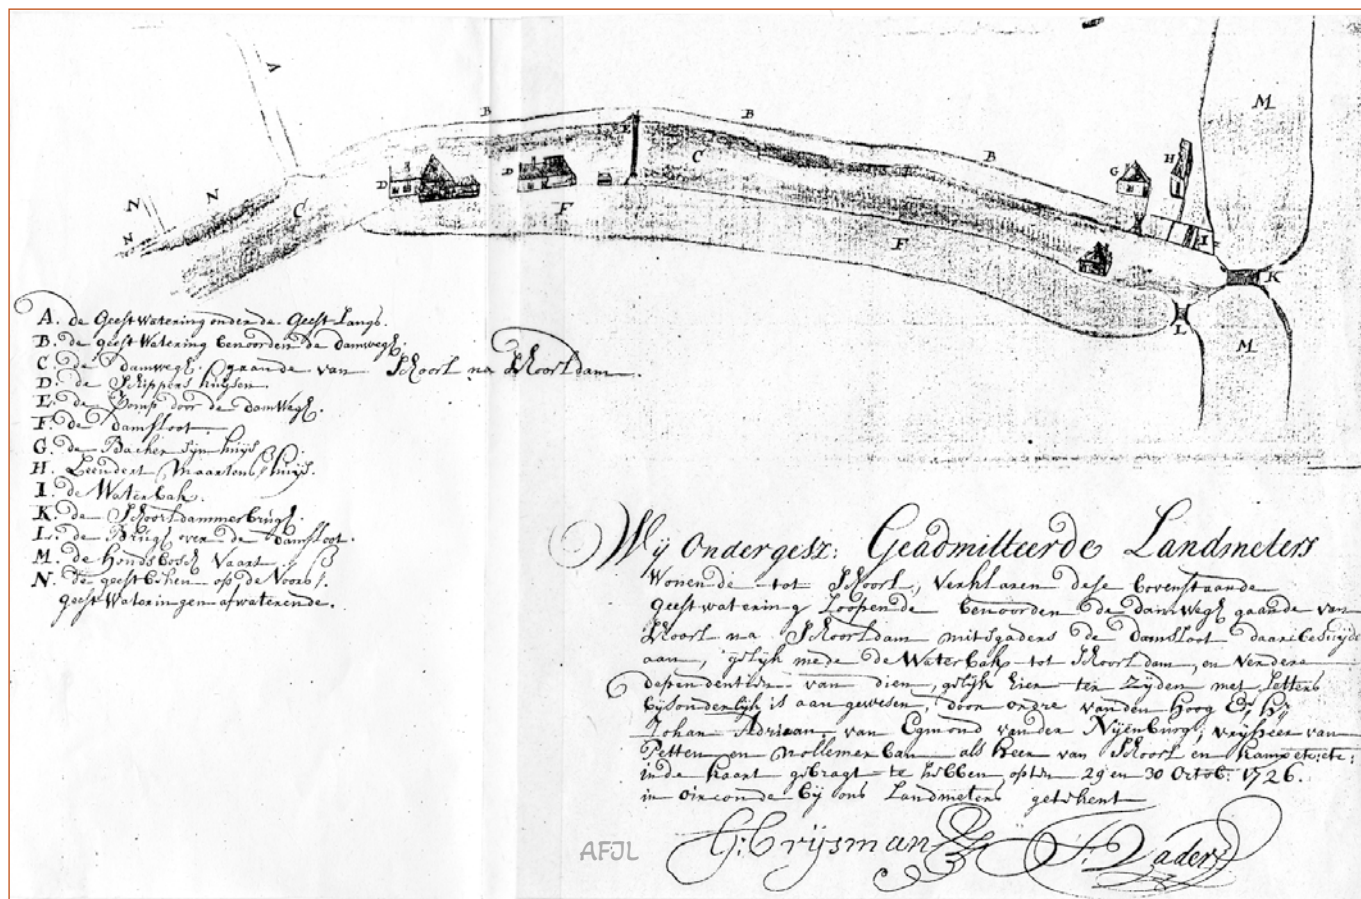 A
B
B
B
M
C
E
D
D
F
F
G
H
I
K
L
M
N
N
N
C
A. de Geest Watering onder de Geest Langs.
B. de geest Watering benoorden de damwegh.
C. de damwegh gaande van Schoorl na Schoorldam.
D. de Schippers huijsen.
E. de Pomp door de damwegh.
F. de damsloot
G. de Backer sijn huijs
H. Leendert Maartens huijs.
I. de Waterbak.
K. de Schoorldammerbrugh.
L. de Brugh over de damsloot.
M. de Hondsbosch Vaart
N. de geestbeken op de Voors:
geest Wateringen afwaterende.
Wij Ondergesz: Geadmitteerde Landmeters
Wonende tot Schoorl, Verklaren dese bovenstaande
geestwatering Loopende benoorden de damwegh gaande van
Schoorl na Schoorldam mitsgaders de damsloot daar besuijde
aan, gelijk mede de Waterbak tot Schoorldam, en verdere
dependentien van dien, gelijk hier ter Zijden met Letters
bijsonderlijk is aangewesen, door ordre van den Hoog Ed. Hr
Johan Adriaan van Egmond van der Nijenburgh, vrijheer van
Petten en Nollemerban als heer van Schoorl en Kamp etc: etc:
in de kaart gebragt te hebben op den 29 en 30 Octob: 1726.
in oirconde bij ons Landmeters getekent
AFJL
G: Crijsman
S. Vader